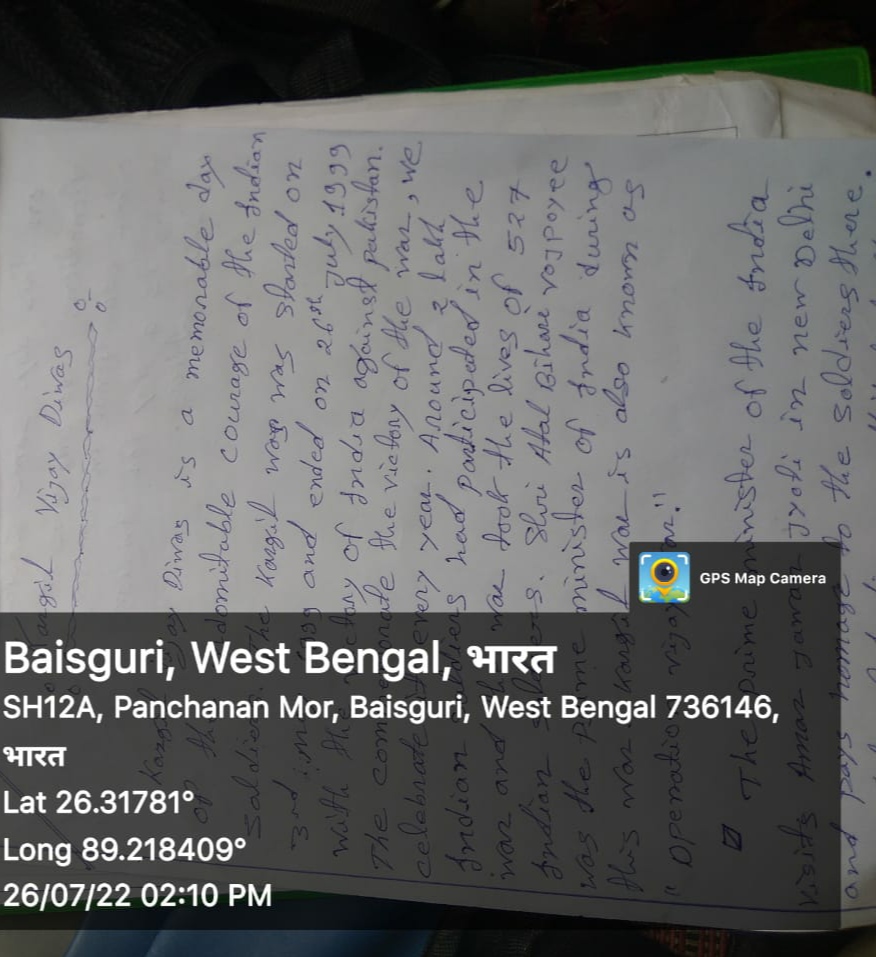 Kargil Vijay Diwas
Kargil Vijay Diwas is a memorable day
of the indomitable courage of the Indian
Soldiers. The Kargil war was started on
3rd may 1999 and ended on 26th July 1999
with the victory of India against pakistan.
The commemorate the victory of the war, we
celebrate it every year. Around 2 lakh
Indian soldiers had participated in the
war and this war took the lives of 527
Indian soldiers. Shri Atal Bihari vajpayee
was the prime minister of India during
this war. Kargil war is also known as
"Operation vijay
The prime minister of the India
visits Amar jawan jyoti in new Delhi
and pays homage to the soldiers there.
GPS Map Camera
Baisguri, West Bengal, भारत
SH12A, Panchanan Mor, Baisguri, West Bengal 736146,
भारत
Lat 26.31781°
Long 89.218409°
26/07/22 02:10 PM